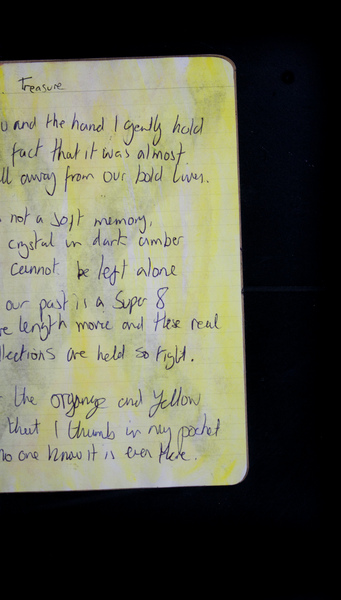 Treasure
u and the hand I gently hold
fact that it was almost
ll away from our bold lives.
not a soft memory,
crystal in dark amber
cannot be left alone
our past is a Super 8
re length movie and these real
llections are held so tight.
the organge and yellow
that I thumb in my pocket
no one know it is even there.